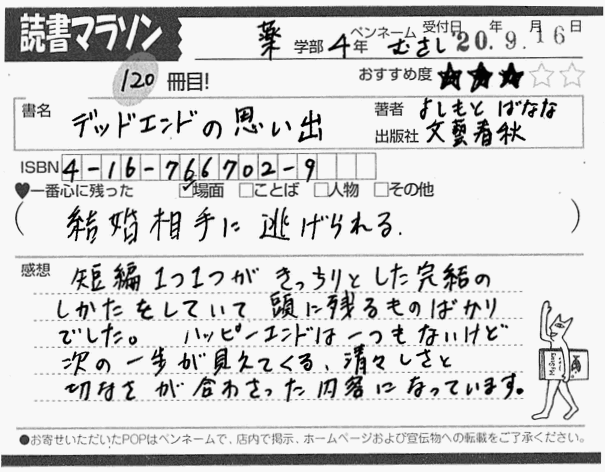 読書マラソン
薬 学部 4年 ペンネーム むさし 受付日 20年 9月 16日
120 冊目! おすすめ度 ★★★☆☆
書名 デッドエンドの思い出 著者 よしもと ばなな
出版社 文藝春秋
ISBN 4-16-766702-9
♥一番心に残った ☑場面 □ことば □人物 □その他
(結婚相手に逃げられる.)
感想 短編1つ1つがきっちりとした完結の
しかたをしていて 頭に残るものばかり
でした。 ハッピーエンドは一つもないけど
次の一歩が見えてくる、清々しさと
切なさが合わさった内容になっています。
●お寄せいただいたPOPはペンネームで、店内で掲示、ホームページおよび宣伝物への転載をご了承ください。